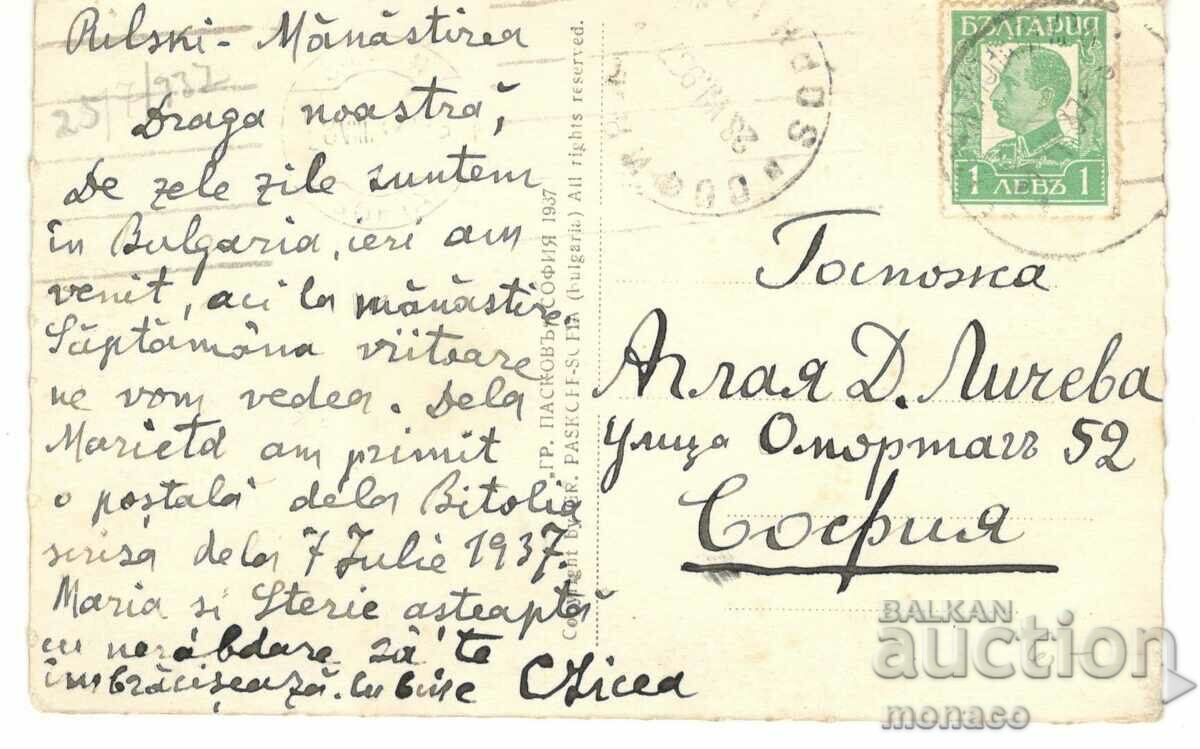 Rilski - Mănăstirea
25/7/937
Draga noastră,
De zele zile suntem
în Bulgaria, ieri am
venit, aci la mănăstire.
Săptămâna vriitoare
ne vom vedea. Dela
Marieta am primit
o poștală dela Bitolia
scrisa dela 7 Iulie 1937.
Maria si Sterie așteaptă
cu nerăbdare să te
îmbrăcișează. cu bine
"ГР. ПАСКОВЪ" СОФИЯ 1937
PASKOFF-SOFIA (bulgaria) All rights reserved.
БЪЛГАРИЯ
1 ЛЕВЪ 1
SOF
28.VII.937
СОФИ
Госпожа
Аглая Д. Личева
улица Омортагъ 52
София
BALKAN
auction
monaco